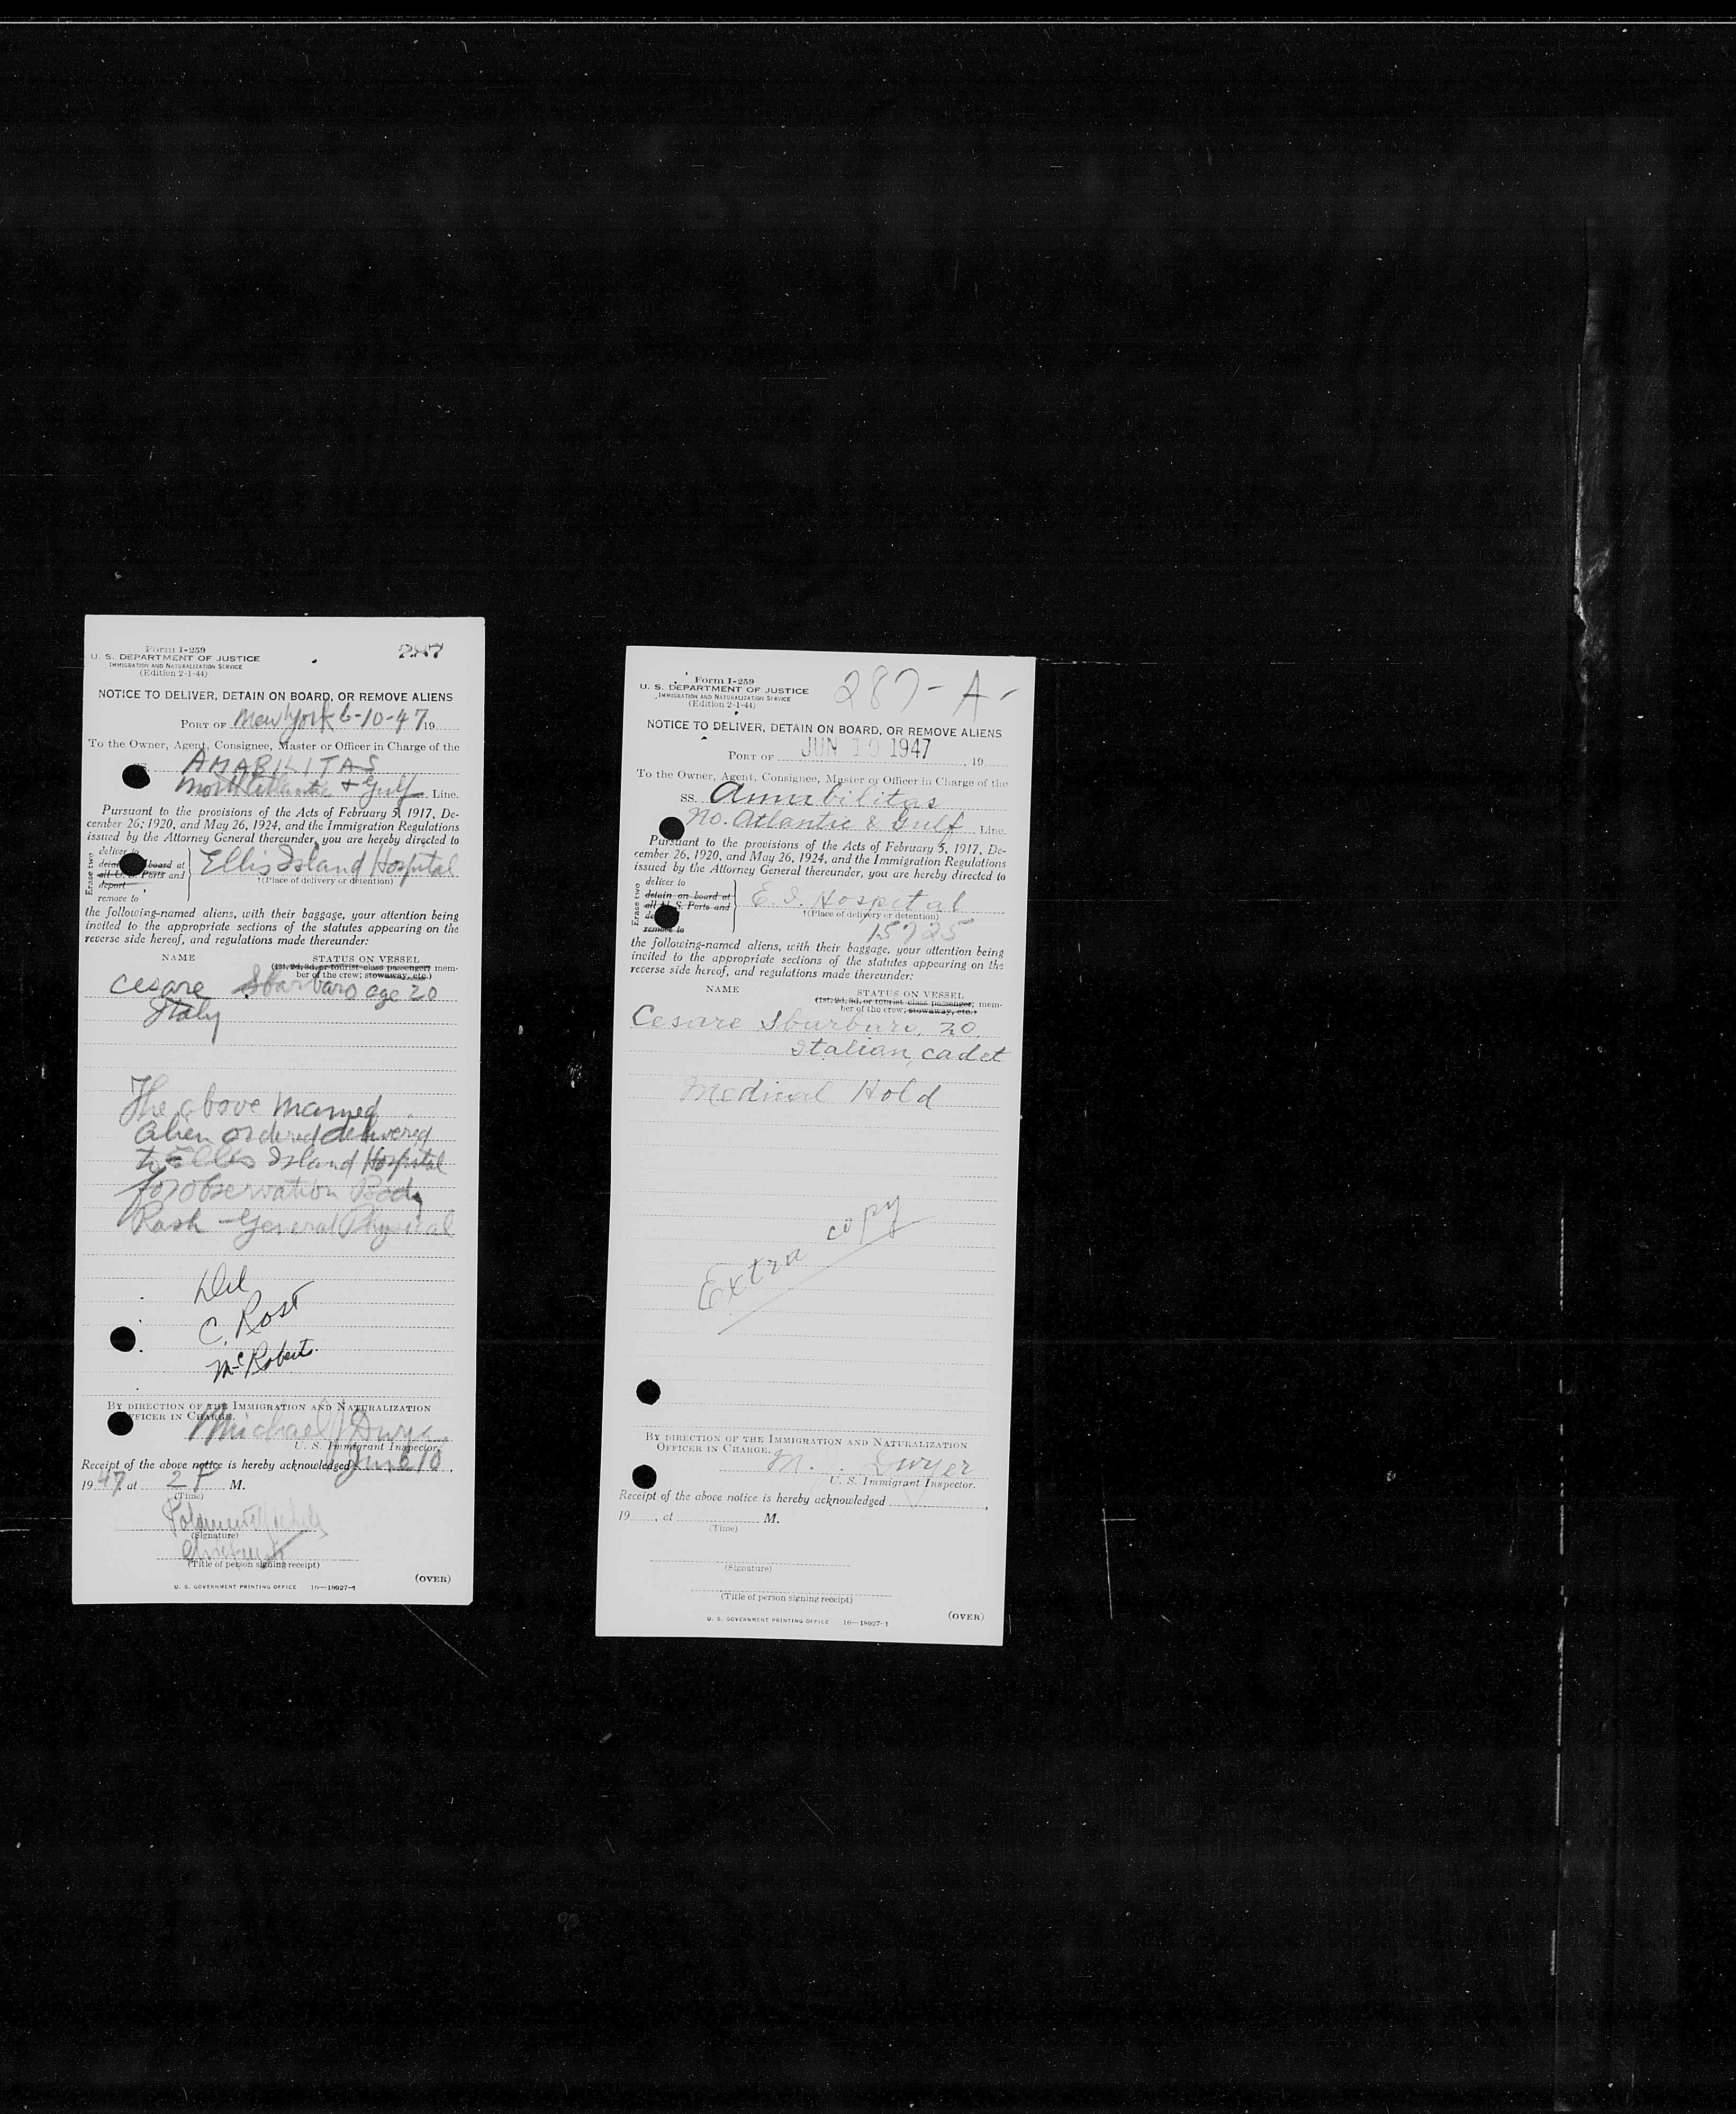 Form I-259
U. S. DEPARTMENT OF JUSTICE
IMMIGRATION AND NATURALIZATION SERVICE
(Edition 2-1-44)
287
NOTICE TO DELIVER, DETAIN ON BOARD, OR REMOVE ALIENS
PORT OF New York 6-10-47 19
To the Owner, Agent, Consignee, Master or Officer in Charge of the
AMABILITAS
North Atlantic & Gulf Line.
Pursuant to the provisions of the Acts of February 5, 1917, De-
cember 26, 1920, and May 26, 1924, and the Immigration Regulations
issued by the Attorney General thereunder, you are hereby directed to
Erase two
deliver to
detain board at
all U. S. Ports and
deport
remove to
Ellis Island Hospital
†(Place of delivery or detention)
the following-named aliens, with their baggage, your attention being
invited to the appropriate sections of the statutes appearing on the
reverse side hereof, and regulations made thereunder:
NAME STATUS ON VESSEL
(1st, 2d, 3d, or tourist class passenger; mem-
ber of the crew; stowaway, etc.)
Cesare Sbarbaro age 20
Italy
The above named
alien ordered delivered
to Ellis Island Hospital
for observation Body
Rash - General Physical
Del
C. Rost
McRoberts.
BY DIRECTION OF THE IMMIGRATION AND NATURALIZATION
OFFICER IN CHARGE.
Michael J Dwyer
U. S. Immigrant Inspector.
Receipt of the above notice is hereby acknowledged June 10,
1947, at 2 P M.
(Time)
(Signature)
(Title of person signing receipt)
U. S. GOVERNMENT PRINTING OFFICE 16—18027-1
(OVER)
Form I-259
U. S. DEPARTMENT OF JUSTICE
IMMIGRATION AND NATURALIZATION SERVICE
(Edition 2-1-44)
287-A-
NOTICE TO DELIVER, DETAIN ON BOARD, OR REMOVE ALIENS
PORT OF JUN 10 1947, 19
To the Owner, Agent, Consignee, Master or Officer in Charge of the
SS. Amabilitas
No. Atlantic & Gulf Line.
Pursuant to the provisions of the Acts of February 5, 1917, De-
cember 26, 1920, and May 26, 1924, and the Immigration Regulations
issued by the Attorney General thereunder, you are hereby directed to
Erase two
deliver to
detain on board at
all U. S. Ports and
remove to
E. I. Hospital
†(Place of delivery or detention)
15725
the following-named aliens, with their baggage, your attention being
invited to the appropriate sections of the statutes appearing on the
reverse side hereof, and regulations made thereunder:
NAME STATUS ON VESSEL
(1st, 2d, 3d, or tourist class passenger; mem-
ber of the crew; stowaway, etc.)
Cesare Sbarbaro, 20,
Italian, cadet
Medical Hold
Extra copy
BY DIRECTION OF THE IMMIGRATION AND NATURALIZATION
OFFICER IN CHARGE.
M. J. Dwyer
U. S. Immigrant Inspector.
Receipt of the above notice is hereby acknowledged ,
19 , at M.
(Time)
(Signature)
(Title of person signing receipt)
U. S. GOVERNMENT PRINTING OFFICE 16—18027-1
(OVER)